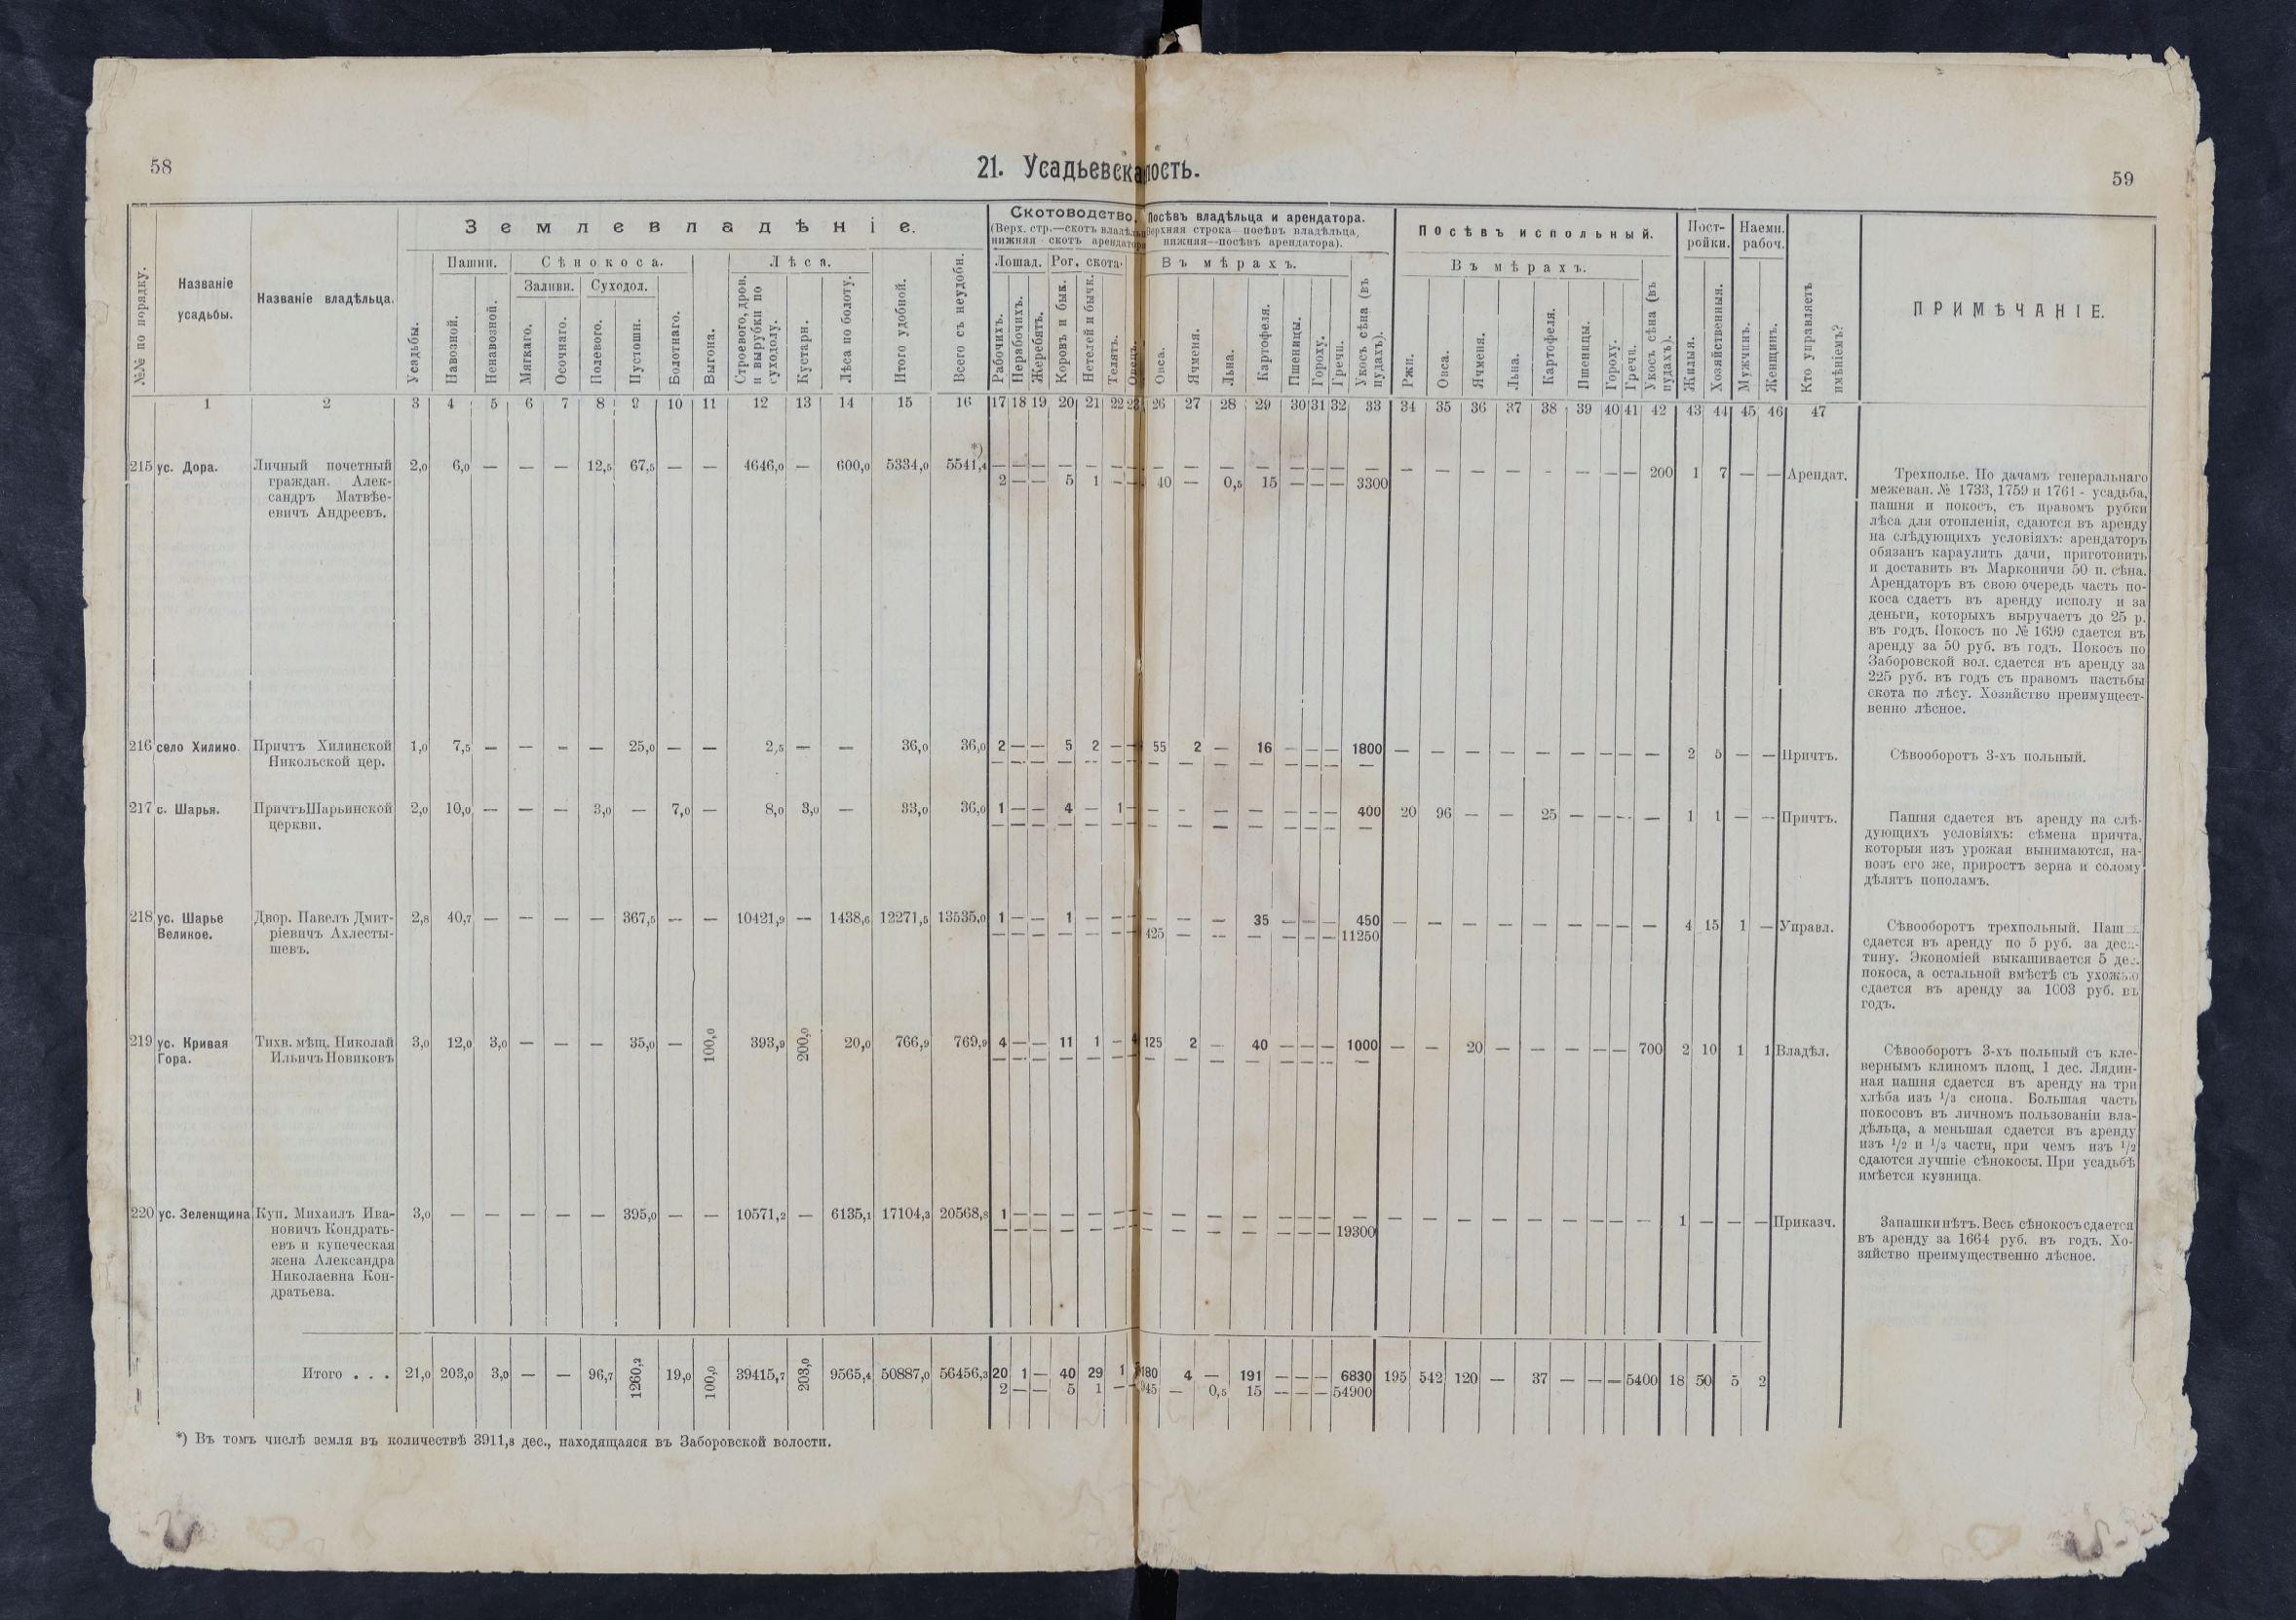 58
21. Усадьевска
лость.
59
Землевладѣніе.
Скотоводство.
(Верх. стр.—скотъ
нижняя скотъ
Посѣвъ владѣльца и арендатора.
верхняя строка посѣвъ владѣльца,
нижняя—посѣвъ арендатора).
Посѣвъ испольный.
Пост-
ройки.
Наемн.
рабоч.
№№ по порядку.
Названіе
усадьбы.
Названіе владѣльца.
Пашни.
Сѣнокоса.
Лѣса.
Лошад.
Рог. скота.
Въ мѣрахъ.
Въ мѣрахъ.
Заливн.
Суходол.
Усадьбы.
Навозной.
Ненавозной.
Мягкаго.
Осочнаго.
Полевого.
Пустошн.
Болотнаго.
Выгона.
Строевого, дров.
и вырубки по
суходолу.
Кустарн.
Лѣса по болоту.
Итого удобной.
Всего съ неудобн.
Рабочихъ.
Нерабочихъ.
Жеребятъ.
Коровъ и бык.
Нетелей и бычк.
Телятъ.
Овецъ.
Овса.
Ячменя.
Льна.
Картофеля.
Пшеницы.
Гороху.
Гречи.
Укосъ сѣна (въ
пудахъ).
Ржи.
Овса.
Ячменя.
Льна.
Картофеля.
Пшеницы.
Гороху.
Гречи.
Укосъ сѣна (въ
пудахъ).
Жилыя.
Хозяйственныя.
Мужчинъ.
Женщинъ.
Кто управляетъ
имѣніемъ?
ПРИМѢЧАНІЕ.
1 2 3 4 5 6 7 8 9 10 11 12 13 14 15 16 17 18 19 20 21 22 23 26 27 28 29 30 31 32 33 34 35 36 37 38 39 40 41 42 43 44 45 46 47
*)
215 ус. Дора. Личный почетный 2,0 6,0 — — — 12,5 67,5 — — 4646,0 — 600,0 5334,0 5541,4 — — — — — — — — — — — — — — — — — — — — — — — 200 1 7 — — Арендат.
граждан. Алек- 2 — — 5 1 — — 40 — 0,5 15 — — — 3300
сандръ Матвѣе-
евичъ Андреевъ.
Трехполье. По дачамъ генеральнаго
межеван. № 1733, 1759 и 1761 - усадьба,
пашня и покосъ, съ правомъ рубки
лѣса для отопленія, сдаются въ аренду
на слѣдующихъ условіяхъ: арендаторъ
обязанъ караулить дачи, приготовить
и доставить въ Марконичи 50 п. сѣна.
Арендаторъ въ свою очередь часть по-
коса сдаетъ въ аренду исполу и за
деньги, которыхъ выручаетъ до 25 р.
въ годъ. Покосъ по № 1699 сдается въ
аренду за 50 руб. въ годъ. Покосъ по
Заборовской вол. сдается въ аренду за
225 руб. въ годъ съ правомъ пастьбы
скота по лѣсу. Хозяйство преимущест-
венно лѣсное.
216 село Хилино. Причтъ Хилинской 1,0 7,5 — — — — 25,0 — — 2,5 — — 36,0 36,0 2 — — 5 2 — — 55 2 — 16 — — — 1800 — — — — — — — — — 2 5 — — Причтъ.
Никольской цер. — — — — — — — — — — — — — — —
Сѣвооборотъ 3-хъ польный.
217 с. Шарья. Причтъ Шарьинской 2,0 10,0 — — — 3,0 — 7,0 — 8,0 3,0 — 33,0 36,0 1 — — 4 — 1 — — — — — — — — 400 20 96 — — 25 — — — — 1 1 — — Причтъ.
церкви. — — — — — — — — — — — — — — —
Пашня сдается въ аренду на слѣ-
дующихъ условіяхъ: сѣмена причта,
которыя изъ урожая вынимаются, на-
возъ его же, приростъ зерна и солому
дѣлятъ пополамъ.
218 ус. Шарье Двор. Павелъ Дмит- 2,8 40,7 — — — — 367,5 — — 10421,9 — 1438,6 12271,5 13535,0 1 — — 1 — — — — — — 35 — — — 450 — — — — — — — — — 4 15 1 — Управл.
Великое. ріевичъ Ахлесты- — — — — — — — 425 — — — — — — 11250
шевъ.
Сѣвооборотъ трехпольный.
сдается въ аренду по 5 руб. за
тину. Экономіей выкашивается 5
покоса, а остальной вмѣстѣ съ
сдается въ аренду за 1003 руб. въ
годъ.
219 ус. Кривая Тихв. мѣщ. Николай 3,0 12,0 3,0 — — — 35,0 — 100,0 393,9 200,0 20,0 766,9 769,9 4 — — 11 1 — 4 125 2 — 40 — — — 1000 — — 20 — — — — — 700 2 10 1 1 Владѣл.
Гора. Ильичъ Новиковъ — — — — — — — — — — — — — —
Сѣвооборотъ 3-хъ польный съ кле-
вернымъ клиномъ площ. 1 дес. Лядин-
ная пашня сдается въ аренду на три
хлѣба изъ 1/3 снопа. Большая часть
покосовъ въ личномъ пользованіи вла-
дѣльца, а меньшая сдается въ аренду
изъ 1/2 и 1/3 части, при чемъ изъ 1/2
сдаются лучшіе сѣнокосы. При усадьбѣ
имѣется кузница.
220 ус. Зеленщина Куп. Михаилъ Ива- 3,0 — — — — — 395,0 — — 10571,2 — 6135,1 17104,3 20568,8 1 — — — — — — — — — — — — — — — — — — — — — — — 1 — — — Приказч.
новичъ Кондрать- — — — — — — — — — — — — — — 19300
евъ и купеческая
жена Александра
Николаевна Кон-
дратьева.
Запашки нѣтъ. Весь сѣнокосъ сдается
въ аренду за 1664 руб. въ годъ. Хо-
зяйство преимущественно лѣсное.
Итого . . . 21,0 203,0 3,0 — — 96,7 1260,2 19,0 100,0 39415,7 203,0 9565,4 50887,0 56456,3 20 1 — 40 29 1 180 4 — 191 — — — 6830 195 542 120 — 37 — — — 5400 18 50 5 2
2 — — 5 1 — — 945 — 0,5 15 — — — 54900
*) Въ томъ числѣ земля въ количествѣ 3911,8 дес., находящаяся въ Заборовской волости.